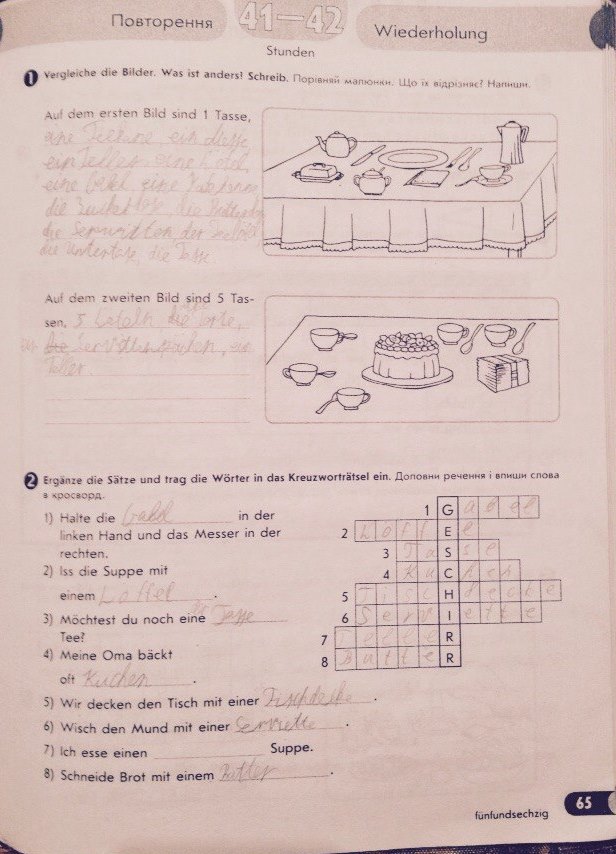 Повторення
41—42
Wiederholung
Stunden
1 Vergleiche die Bilder. Was ist anders? Schreib. Порівняй малюнки. Що їх відрізняє? Напиши.
Auf dem ersten Bild sind 1 Tasse,
ein
ein Teller, eine
eine
die
die Servietten der
die die Tasse
Auf dem zweiten Bild sind 5 Tas-
sen, 5 die Torte,
Teller
2 Ergänze die Sätze und trag die Wörter in das Kreuzworträtsel ein. Доповни речення і впиши слова
в кросворд.
1) Halte die Gabel in der
linken Hand und das Messer in der
rechten.
2) Iss die Suppe mit
einem Loffel.
3) Möchtest du noch eine Tasse
Tee?
4) Meine Oma bäckt
oft Kuchen.
5) Wir decken den Tisch mit einer Tischdecke.
6) Wisch den Mund mit einer Serviette.
7) Ich esse einen Suppe.
8) Schneide Brot mit einem Butter.
1 Gabel
2 Loffel
3 Tasse
4 Kuchen
5 Tischdecke
6 Serviette
7 R
8 Butter
65
fünfundsechzig